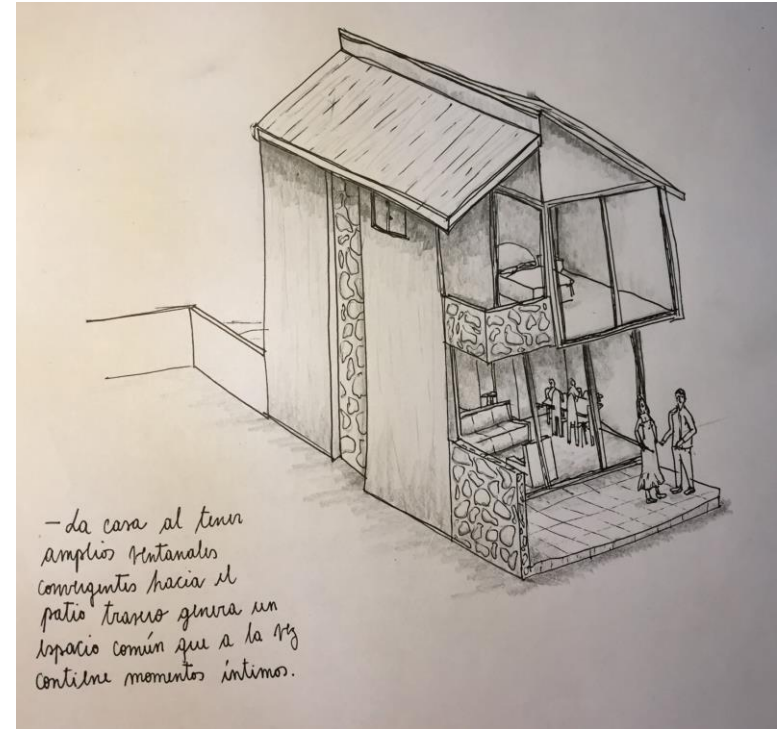 - La casa al tener
amplios ventanales
convergentes hacia el
patio trasero genera un
espacio común que a la vez
contiene momentos íntimos.